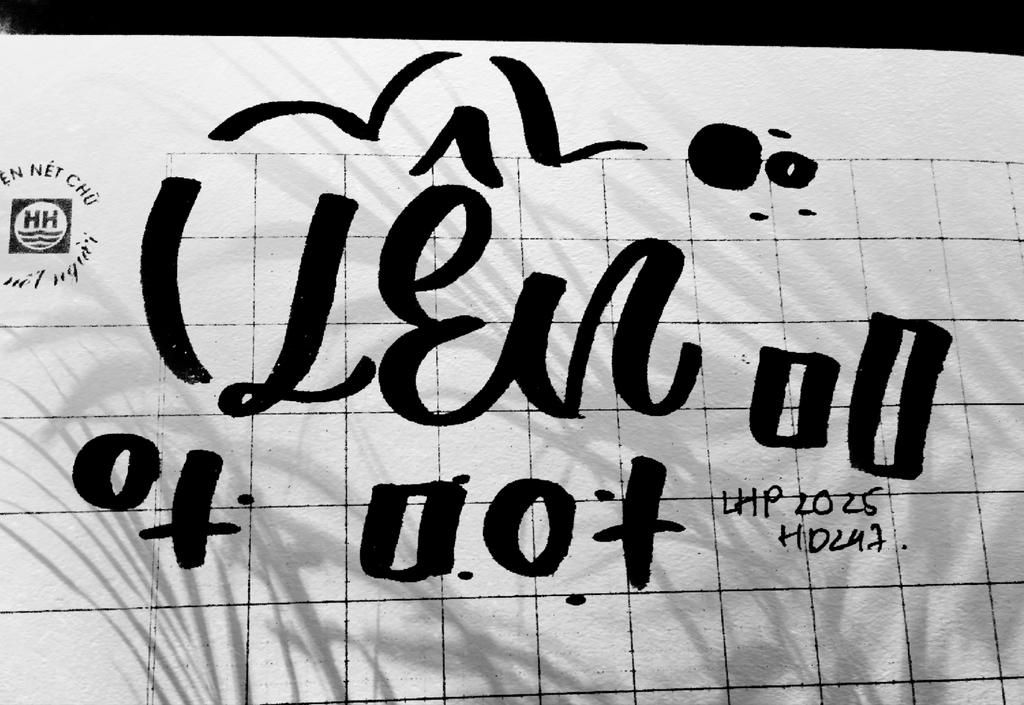 ỆN NÉT CHỮ
HH
nết người
Yên
LHP 2025
HD247.